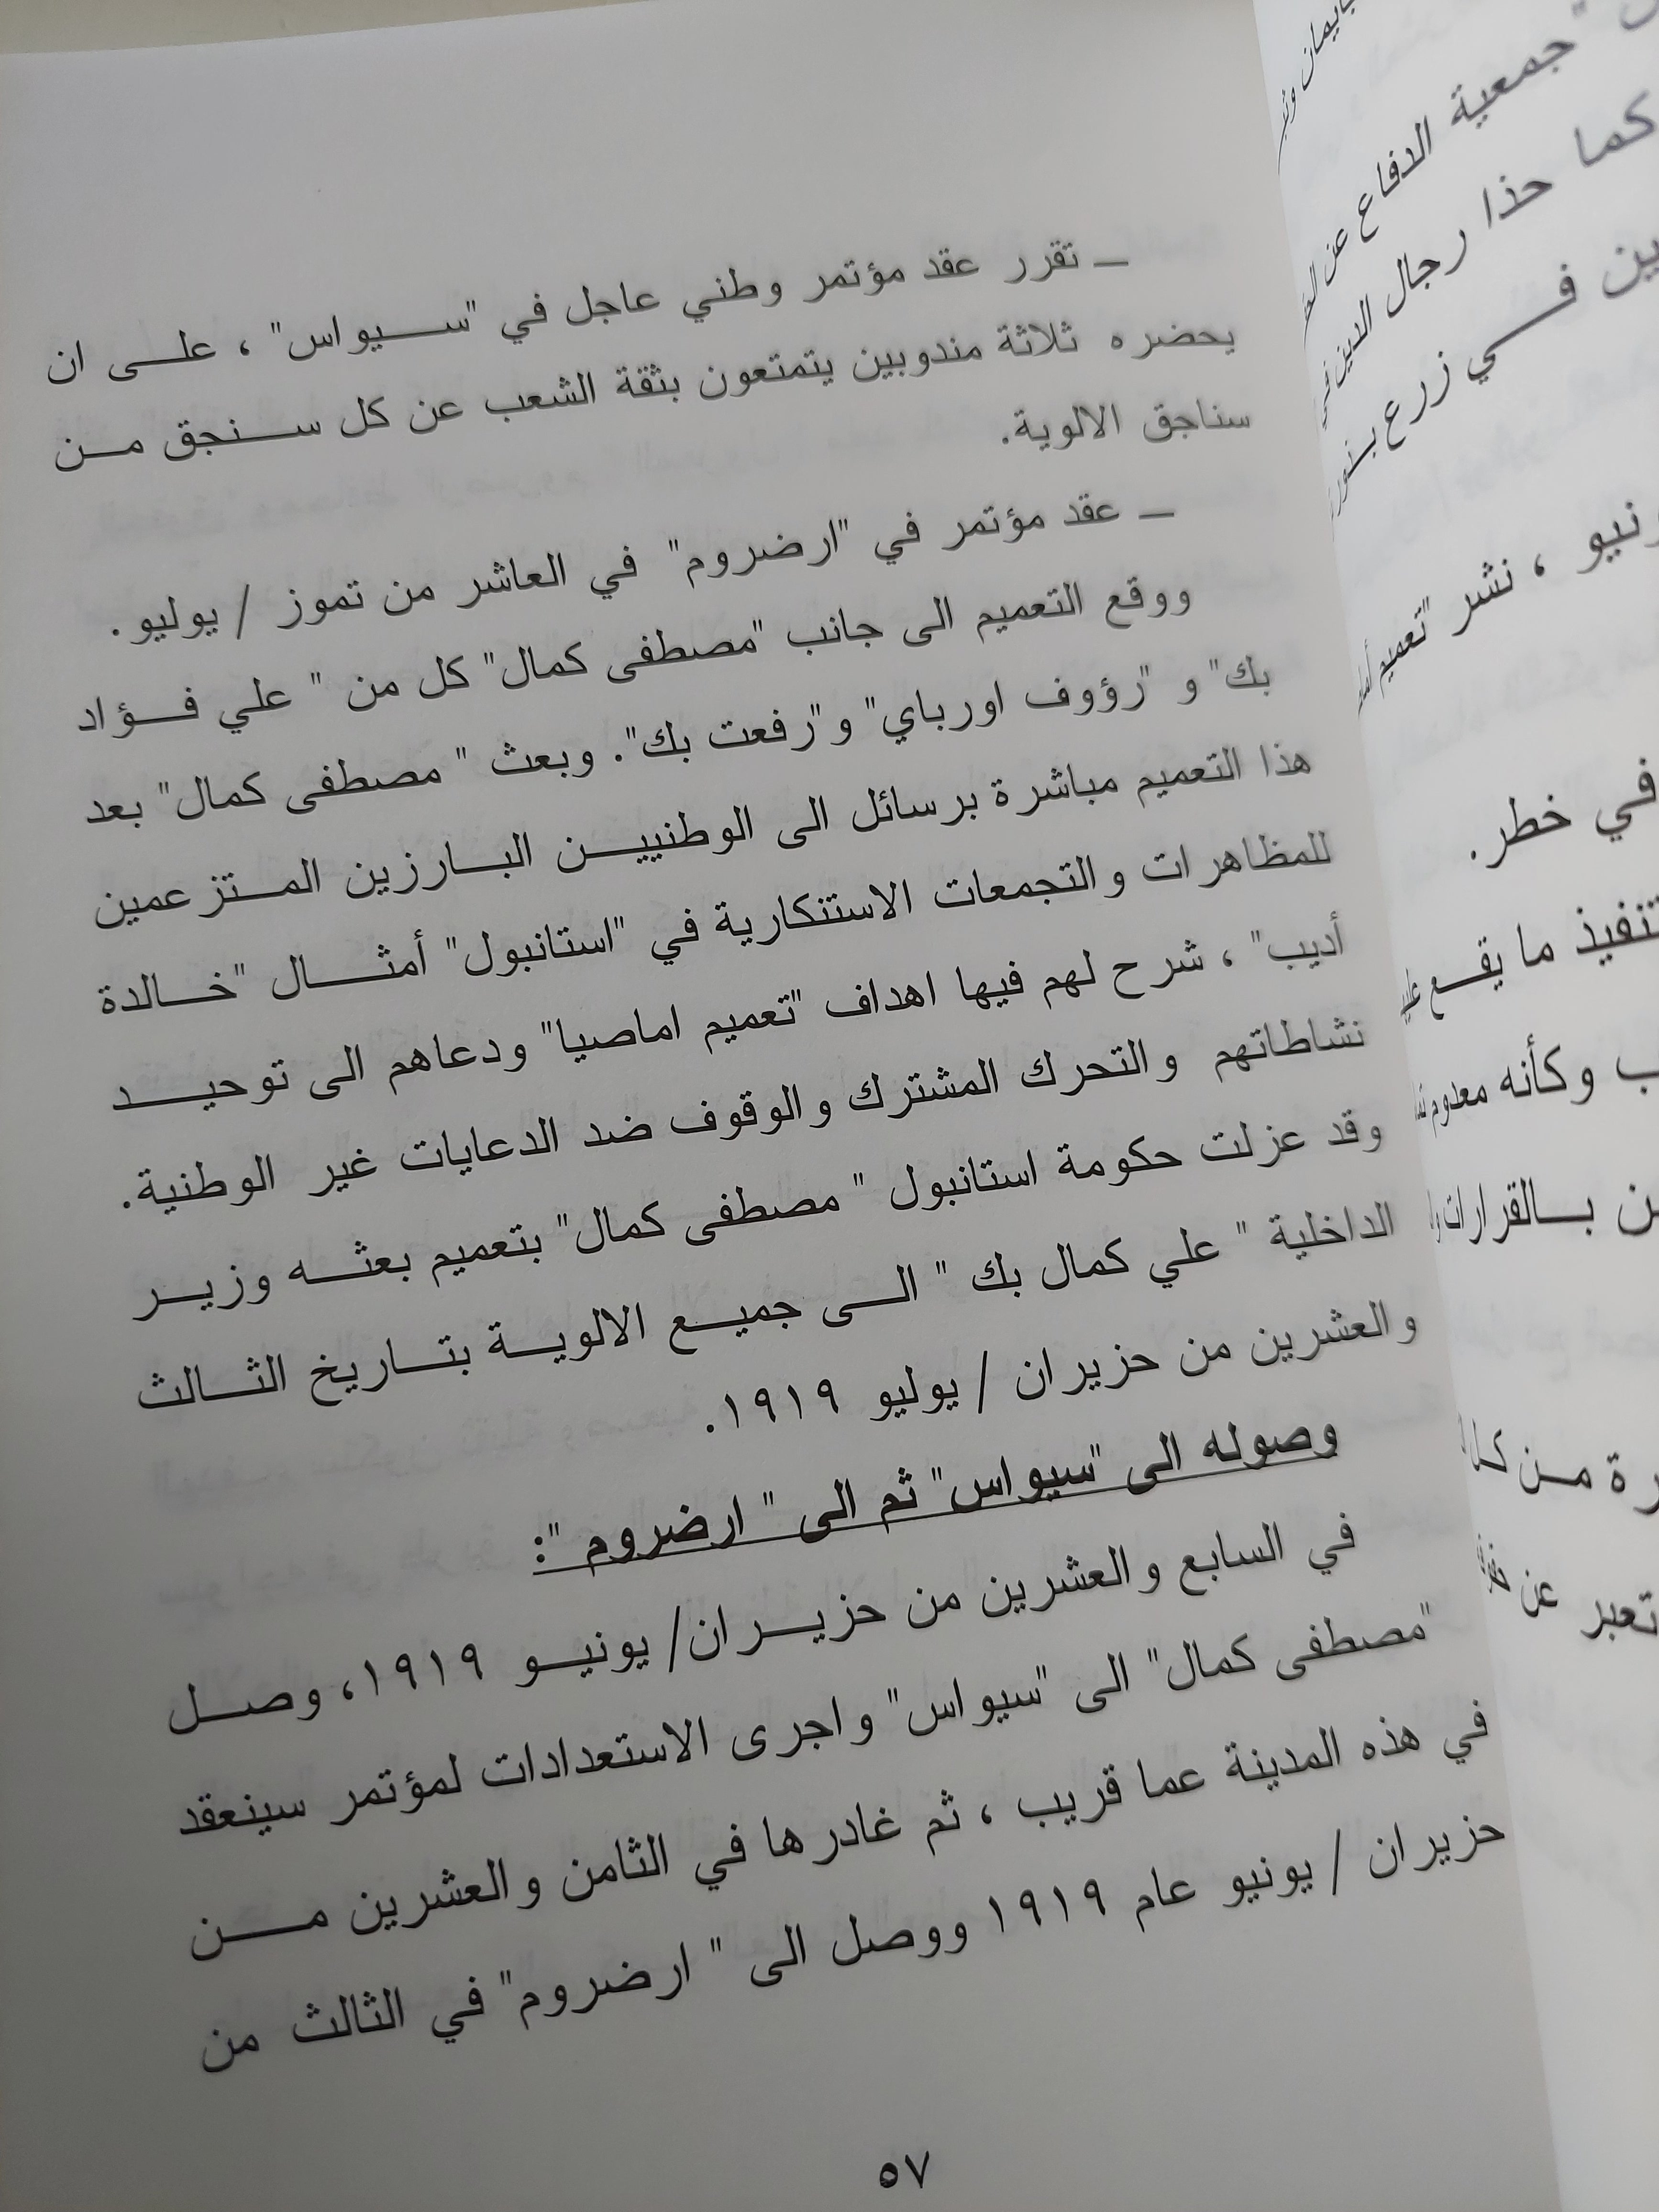 ـ تقرر عقد مؤتمر وطني عاجل في "سيواس" ، على ان
يحضره ثلاثة مندوبين يتمتعون بثقة الشعب عن كل سنجق من
سناجق الالوية.
ـ عقد مؤتمر في "ارضروم" في العاشر من تموز / يوليو.
ووقع التعميم الى جانب "مصطفى كمال" كل من " علي فؤاد
بك" و "رؤوف اورباي" و"رفعت بك". وبعث " مصطفى كمال" بعد
هذا التعميم مباشرة برسائل الى الوطنيين البارزين المتزعمين
للمظاهرات والتجمعات الاستنكارية في "استانبول" أمثال "خالدة
أديب" ، شرح لهم فيها اهداف "تعميم اماصيا" ودعاهم الى توحيد
نشاطاتهم والتحرك المشترك والوقوف ضد الدعايات غير الوطنية.
وقد عزلت حكومة استانبول " مصطفى كمال" بتعميم بعثه وزير
الداخلية " علي كمال بك " الى جميع الالوية بتاريخ الثالث
والعشرين من حزيران / يوليو ١٩١٩.
وصوله الى "سيواس" ثم الى " ارضروم ":
في السابع والعشرين من حزيران/ يونيو ١٩١٩، وصل
"مصطفى كمال" الى "سيواس" واجرى الاستعدادات لمؤتمر سينعقد
في هذه المدينة عما قريب ، ثم غادرها في الثامن والعشرين من
حزيران / يونيو عام ١٩١٩ ووصل الى " ارضروم" في الثالث من
٥٧
"جمعية الدفاع عن
كما حذا رجال الدين في
في زرع
، نشر "تعميم
في خطر.
تنفيذ ما يقع
وكأنه معدوم
بالقرارات
من
تعبر عن